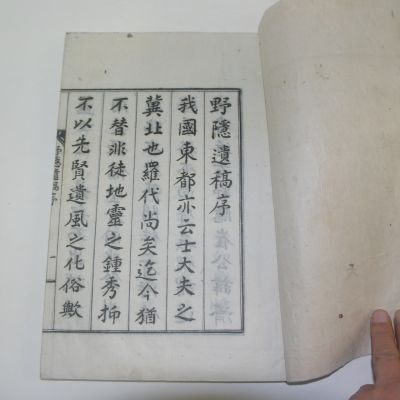 野隱遺稿序
我國東都亦云士大夫之
冀北也羅代尚矣迄今猶
不替非徒地靈之鍾秀抑
不以先賢遺風之化俗歟
野隱遺稿序